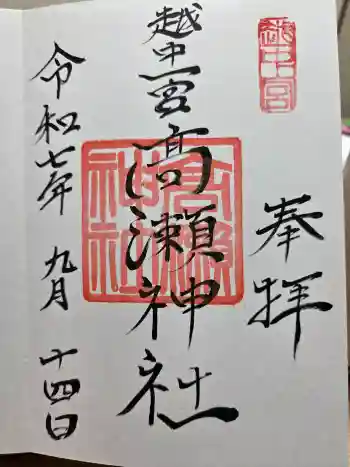 奉拝
越中一宮
越中一宮高瀬神社
高瀬神社
令和七年 九月 十四日